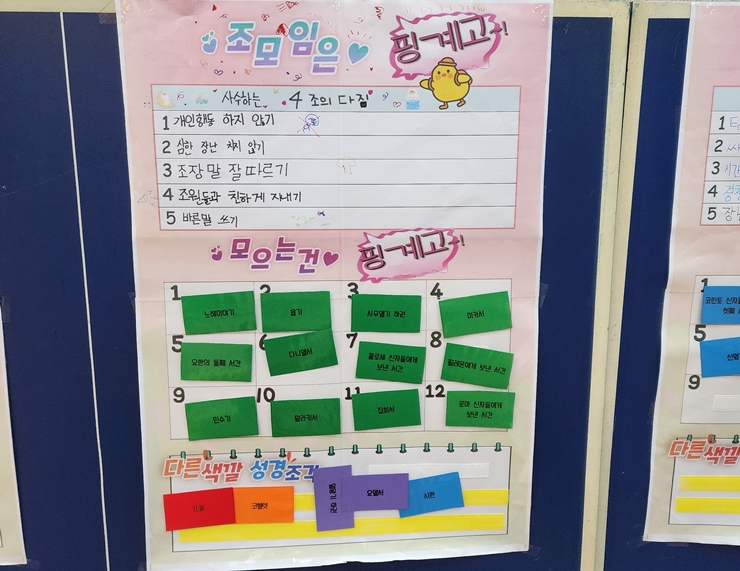 조모임은 핑계고!
사수하는 4조의 다짐
1 개인행동 하지 않기
2 심한 장난 치지 않기
3 조장말 잘 따르기
4 조원들과 친하게 지내기
5 바른말 쓰기
모으는건 핑계고!
1 느헤미야기
2 욥기
3 사무엘기 하권
4 미카서
5 요한의 둘째 서간
6 다니엘서
7 콜로새 신자들에게
보낸 서간
8 필레몬에게 보낸 서간
9 민수기
10 말라키서
11 집회서
12 로마 신자들에게
보낸 서간
다른색깔 성경조각
코헬렛
요엘서
시편
1
2
3 시간
4
5 장난
1
코린토 신자들
첫째
5
9
다른색깔